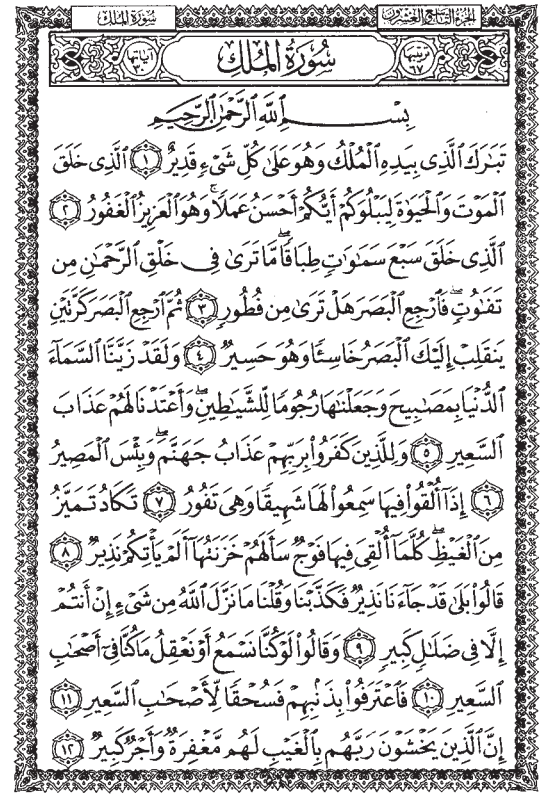 الجزء التاسع والعشرون
سورة الملك
ترتيبها ٦٧
سُورَةُ المُلْكِ
آياتها ٣٠
بِسْمِ ٱللَّهِ ٱلرَّحْمَٰنِ ٱلرَّحِيمِ
تَبَٰرَكَ ٱلَّذِى بِيَدِهِ ٱلْمُلْكُ وَهُوَ عَلَىٰ كُلِّ شَىْءٍ قَدِيرٌ ١ ٱلَّذِى خَلَقَ
ٱلْمَوْتَ وَٱلْحَيَوٰةَ لِيَبْلُوَكُمْ أَيُّكُمْ أَحْسَنُ عَمَلًا ۚ وَهُوَ ٱلْعَزِيزُ ٱلْغَفُورُ ٢
ٱلَّذِى خَلَقَ سَبْعَ سَمَٰوَٰتٍ طِبَاقًا ۖ مَّا تَرَىٰ فِى خَلْقِ ٱلرَّحْمَٰنِ مِن
تَفَٰوُتٍ ۖ فَٱرْجِعِ ٱلْبَصَرَ هَلْ تَرَىٰ مِن فُطُورٍ ٣ ثُمَّ ٱرْجِعِ ٱلْبَصَرَ كَرَّتَيْنِ
يَنقَلِبْ إِلَيْكَ ٱلْبَصَرُ خَاسِئًا وَهُوَ حَسِيرٌ ٤ وَلَقَدْ زَيَّنَّا ٱلسَّمَآءَ
ٱلدُّنْيَا بِمَصَٰبِيحَ وَجَعَلْنَٰهَا رُجُومًا لِّلشَّيَٰطِينِ ۖ وَأَعْتَدْنَا لَهُمْ عَذَابَ
ٱلسَّعِيرِ ٥ وَلِلَّذِينَ كَفَرُوا۟ بِرَبِّهِمْ عَذَابُ جَهَنَّمَ ۖ وَبِئْسَ ٱلْمَصِيرُ
٦ إِذَآ أُلْقُوا۟ فِيهَا سَمِعُوا۟ لَهَا شَهِيقًا وَهِىَ تَفُورُ ٧ تَكَادُ تَمَيَّزُ
مِنَ ٱلْغَيْظِ ۖ كُلَّمَآ أُلْقِىَ فِيهَا فَوْجٌ سَأَلَهُمْ خَزَنَتُهَآ أَلَمْ يَأْتِكُمْ نَذِيرٌ ٨
قَالُوا۟ بَلَىٰ قَدْ جَآءَنَا نَذِيرٌ فَكَذَّبْنَا وَقُلْنَا مَا نَزَّلَ ٱللَّهُ مِن شَىْءٍ إِنْ أَنتُمْ
إِلَّا فِى ضَلَٰلٍ كَبِيرٍ ٩ وَقَالُوا۟ لَوْ كُنَّا نَسْمَعُ أَوْ نَعْقِلُ مَا كُنَّا فِىٓ أَصْحَٰبِ
ٱلسَّعِيرِ ١٠ فَٱعْتَرَفُوا۟ بِذَنۢبِهِمْ فَسُحْقًا لِّأَصْحَٰبِ ٱلسَّعِيرِ ١١
إِنَّ ٱلَّذِينَ يَخْشَوْنَ رَبَّهُم بِٱلْغَيْبِ لَهُم مَّغْفِرَةٌ وَأَجْرٌ كَبِيرٌ ١٢